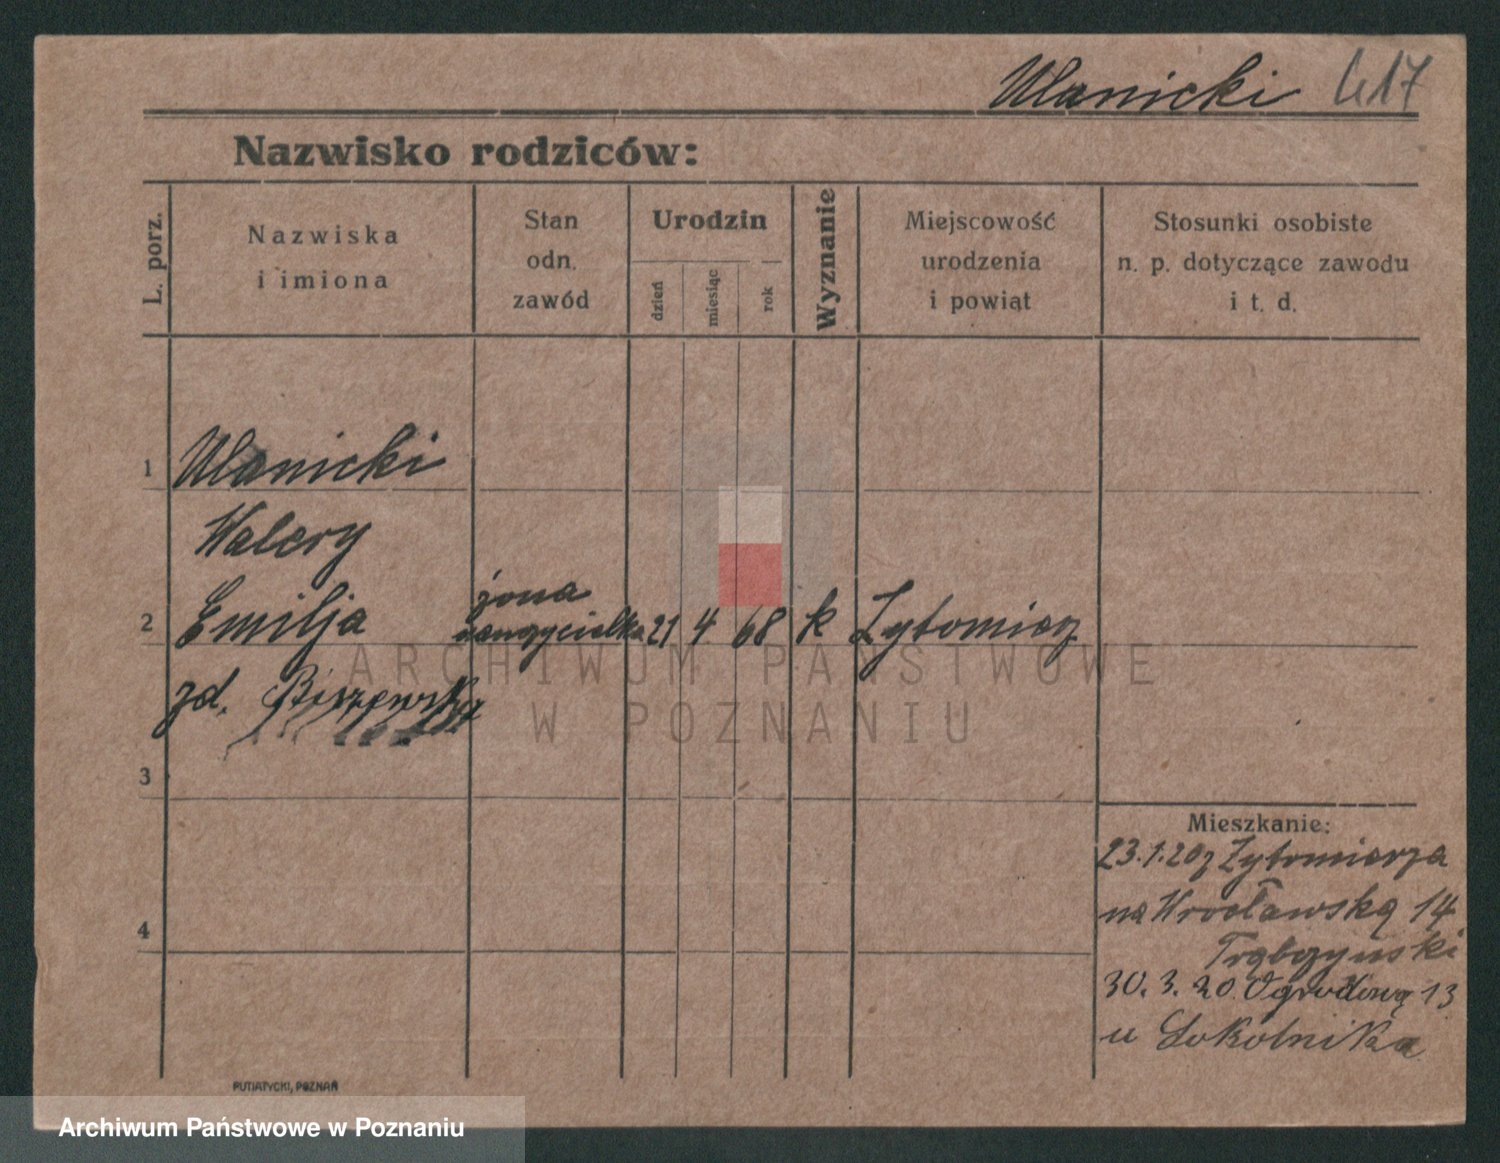 Ulanicki 417
Nazwisko rodziców:
L. porz.
Nazwiska
i imiona
Stan
odn.
zawód
Urodzin
dzień
miesiąc
rok
Wyznanie
Miejscowość
urodzenia
i powiat
Stosunki osobiste
n. p. dotyczące zawodu
i t. d.
1 Ulanicki
Walery
żona
2 Emilja nauczycielka 21 4 68 k Żytomierz
zd.
ARCHIWUM PAŃSTWOWE
W POZNANIU
3
4
Mieszkanie:
23.1.20 z Żytomierza
na Wrocławską 14
Trąbczyński
30.3.20. Ogrodową 13
u Sokolnika
PUTIATYCKI, POZNAŃ
Archiwum Państwowe w Poznaniu